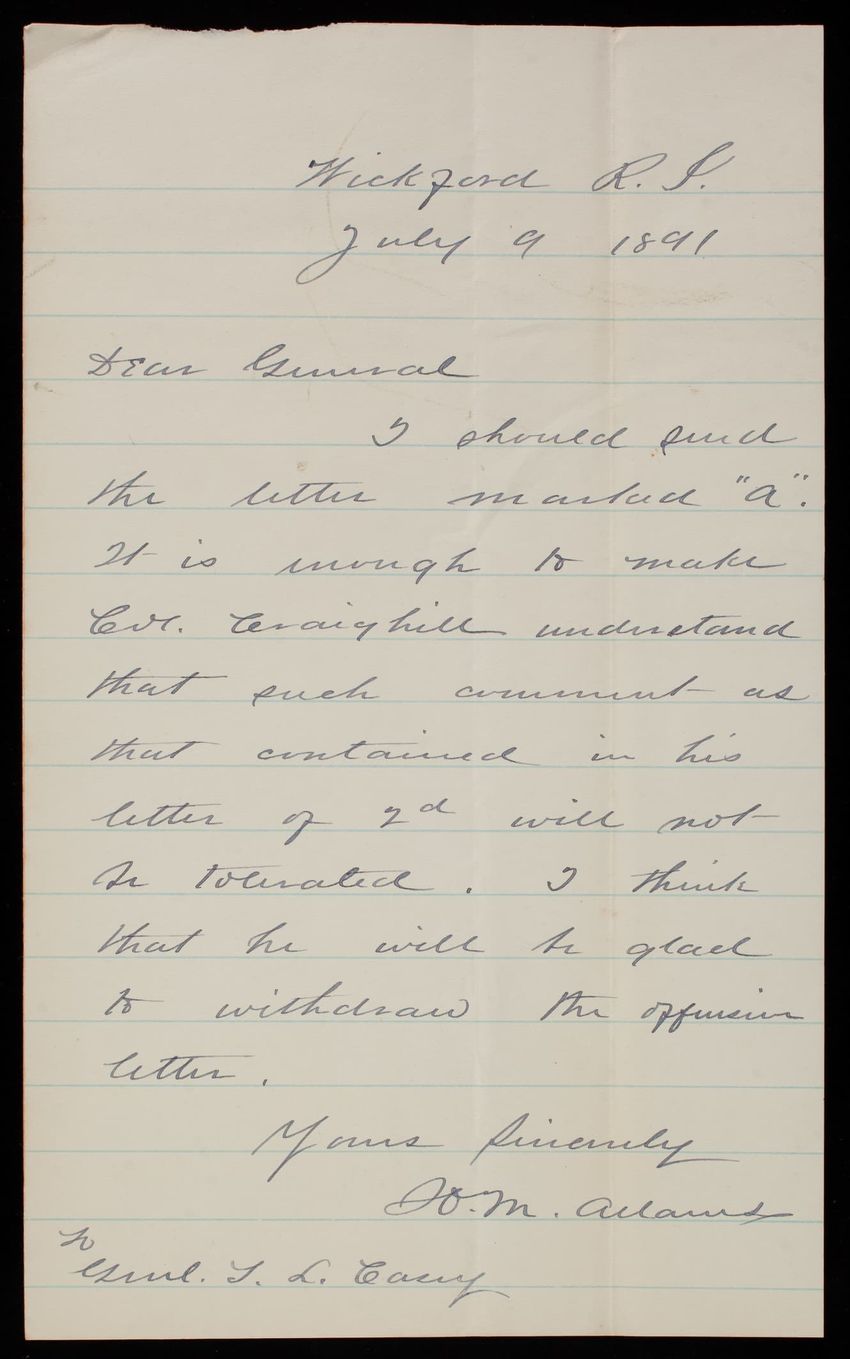 Wickford R.I.
July 9 1891
Dear General
I should send
the letter marked "A".
It is enough to make
Col. Craighill understand
that such comment as
that contained in his
letter of 2d will not
be tolerated. I think
that he will be glad
to withdraw the offensive
letter.
Yours Sincerely
H. M. Adams
To
Genl. T. L. Casey